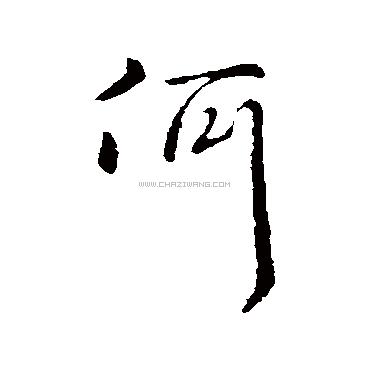 何
WWW.CHAZIWANG.COM